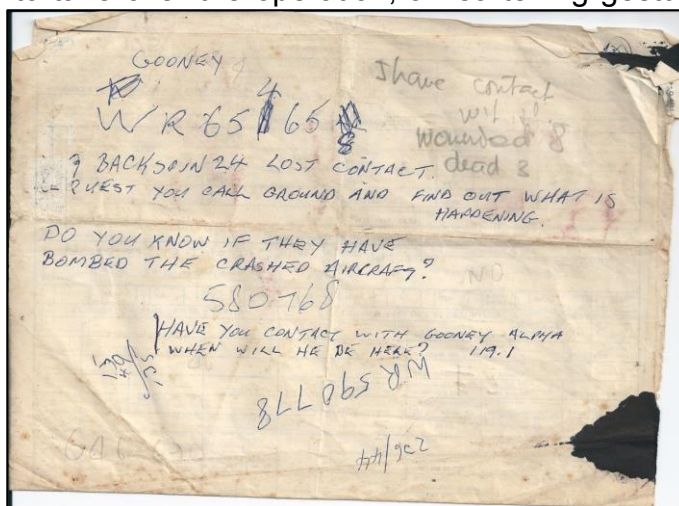 GOONEY
WR 65 65
4
8
I have contact
wounded 8
dead
BACKSPIN 24 LOST CONTACT.
QUEST YOU CALL GROUND AND FIND OUT WHAT IS
HAPPENING.
DO YOU KNOW IF THEY HAVE
BOMBED THE CRASHED AIRCRAFT?
580768
HAVE YOU CONTACT WITH GOONEY ALPHA
WHEN WILL HE BE HERE? 119.1
WR 598778
236/44